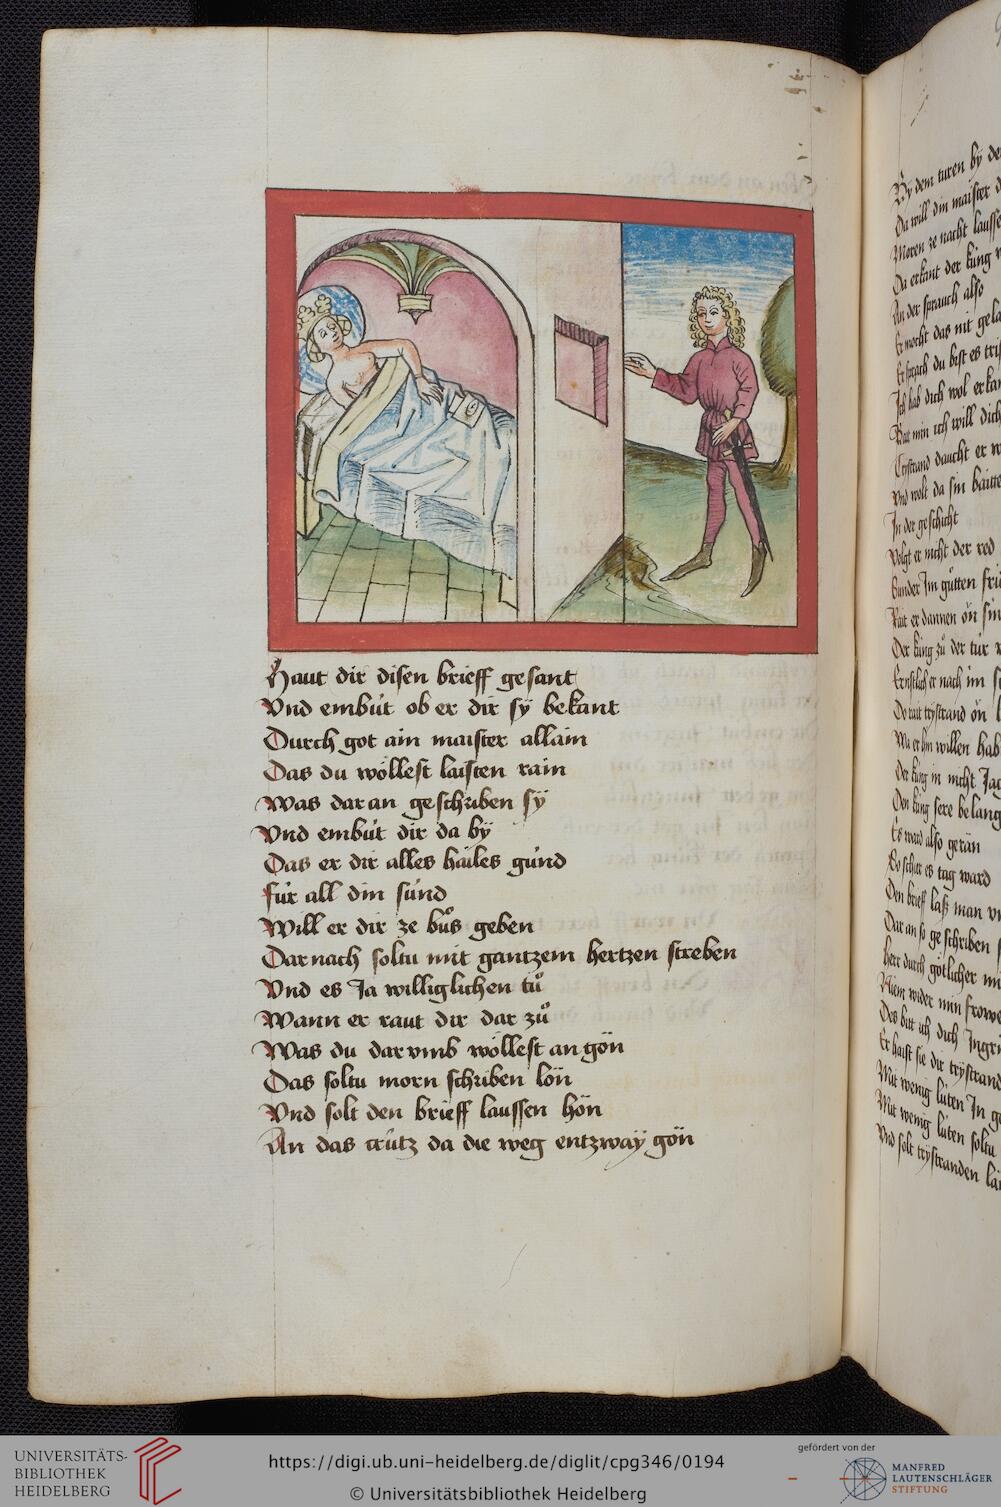 Haut dir disen brieff gesant
Vnd embút ob er dir sÿ bekant
Durch got ain maister allain
Das du wöllest laisten rain
Was dar an geschriben sÿ
Vnd embút dir da bÿ
Das er dir alles hailes gúnd
für all din súnd
Will er dir ze bůs geben
Dar nach soltu mit gantzem hertzen streben
Vnd es Ja williglichen tů
Wann er raut dir dar zů
Was du dar vmb wöllest an gön
Das soltu morn schriben lön
Vnd solt den brieff laussen hön
An das crútz da die weg entzwaÿ gön
Bÿ dem turen bÿ
Da will din maister
Moren ze nacht
Da erkant der kúng
An der sprauch also
Er mocht das nit
Er sprach du bist es
Ich hab dich wol
Bitt min ich will dich
Trÿstrand daucht er
Vnd welt da sin
In der geschicht
Volgt er nicht der red
Sunder Im gůtten
Rait er dannen ön sin
Der kúng zů der túr
Ernstlich er nach im
Do rait trÿstrand ön
Wa er hin willen hab
Der kúng in nicht
Den kúng sere belang
Es ward also getän
So schier es tag ward
Den brieff laß man
Dar an so geschriben
Herr durch götlicher
Niem wider min frowe
Des bitt ich dich
Er haist sie dir trÿstrand
Mit wenig lúten In
Mit wenig lúten soltu
Vnd solt trÿstranden
UNIVERSITÄTS-
BIBLIOTHEK
HEIDELBERG
https://digi.ub.uni-heidelberg.de/diglit/cpg346/0194
© Universitätsbibliothek Heidelberg
gefördert von der
MANFRED
LAUTENSCHLÄGER
STIFTUNG